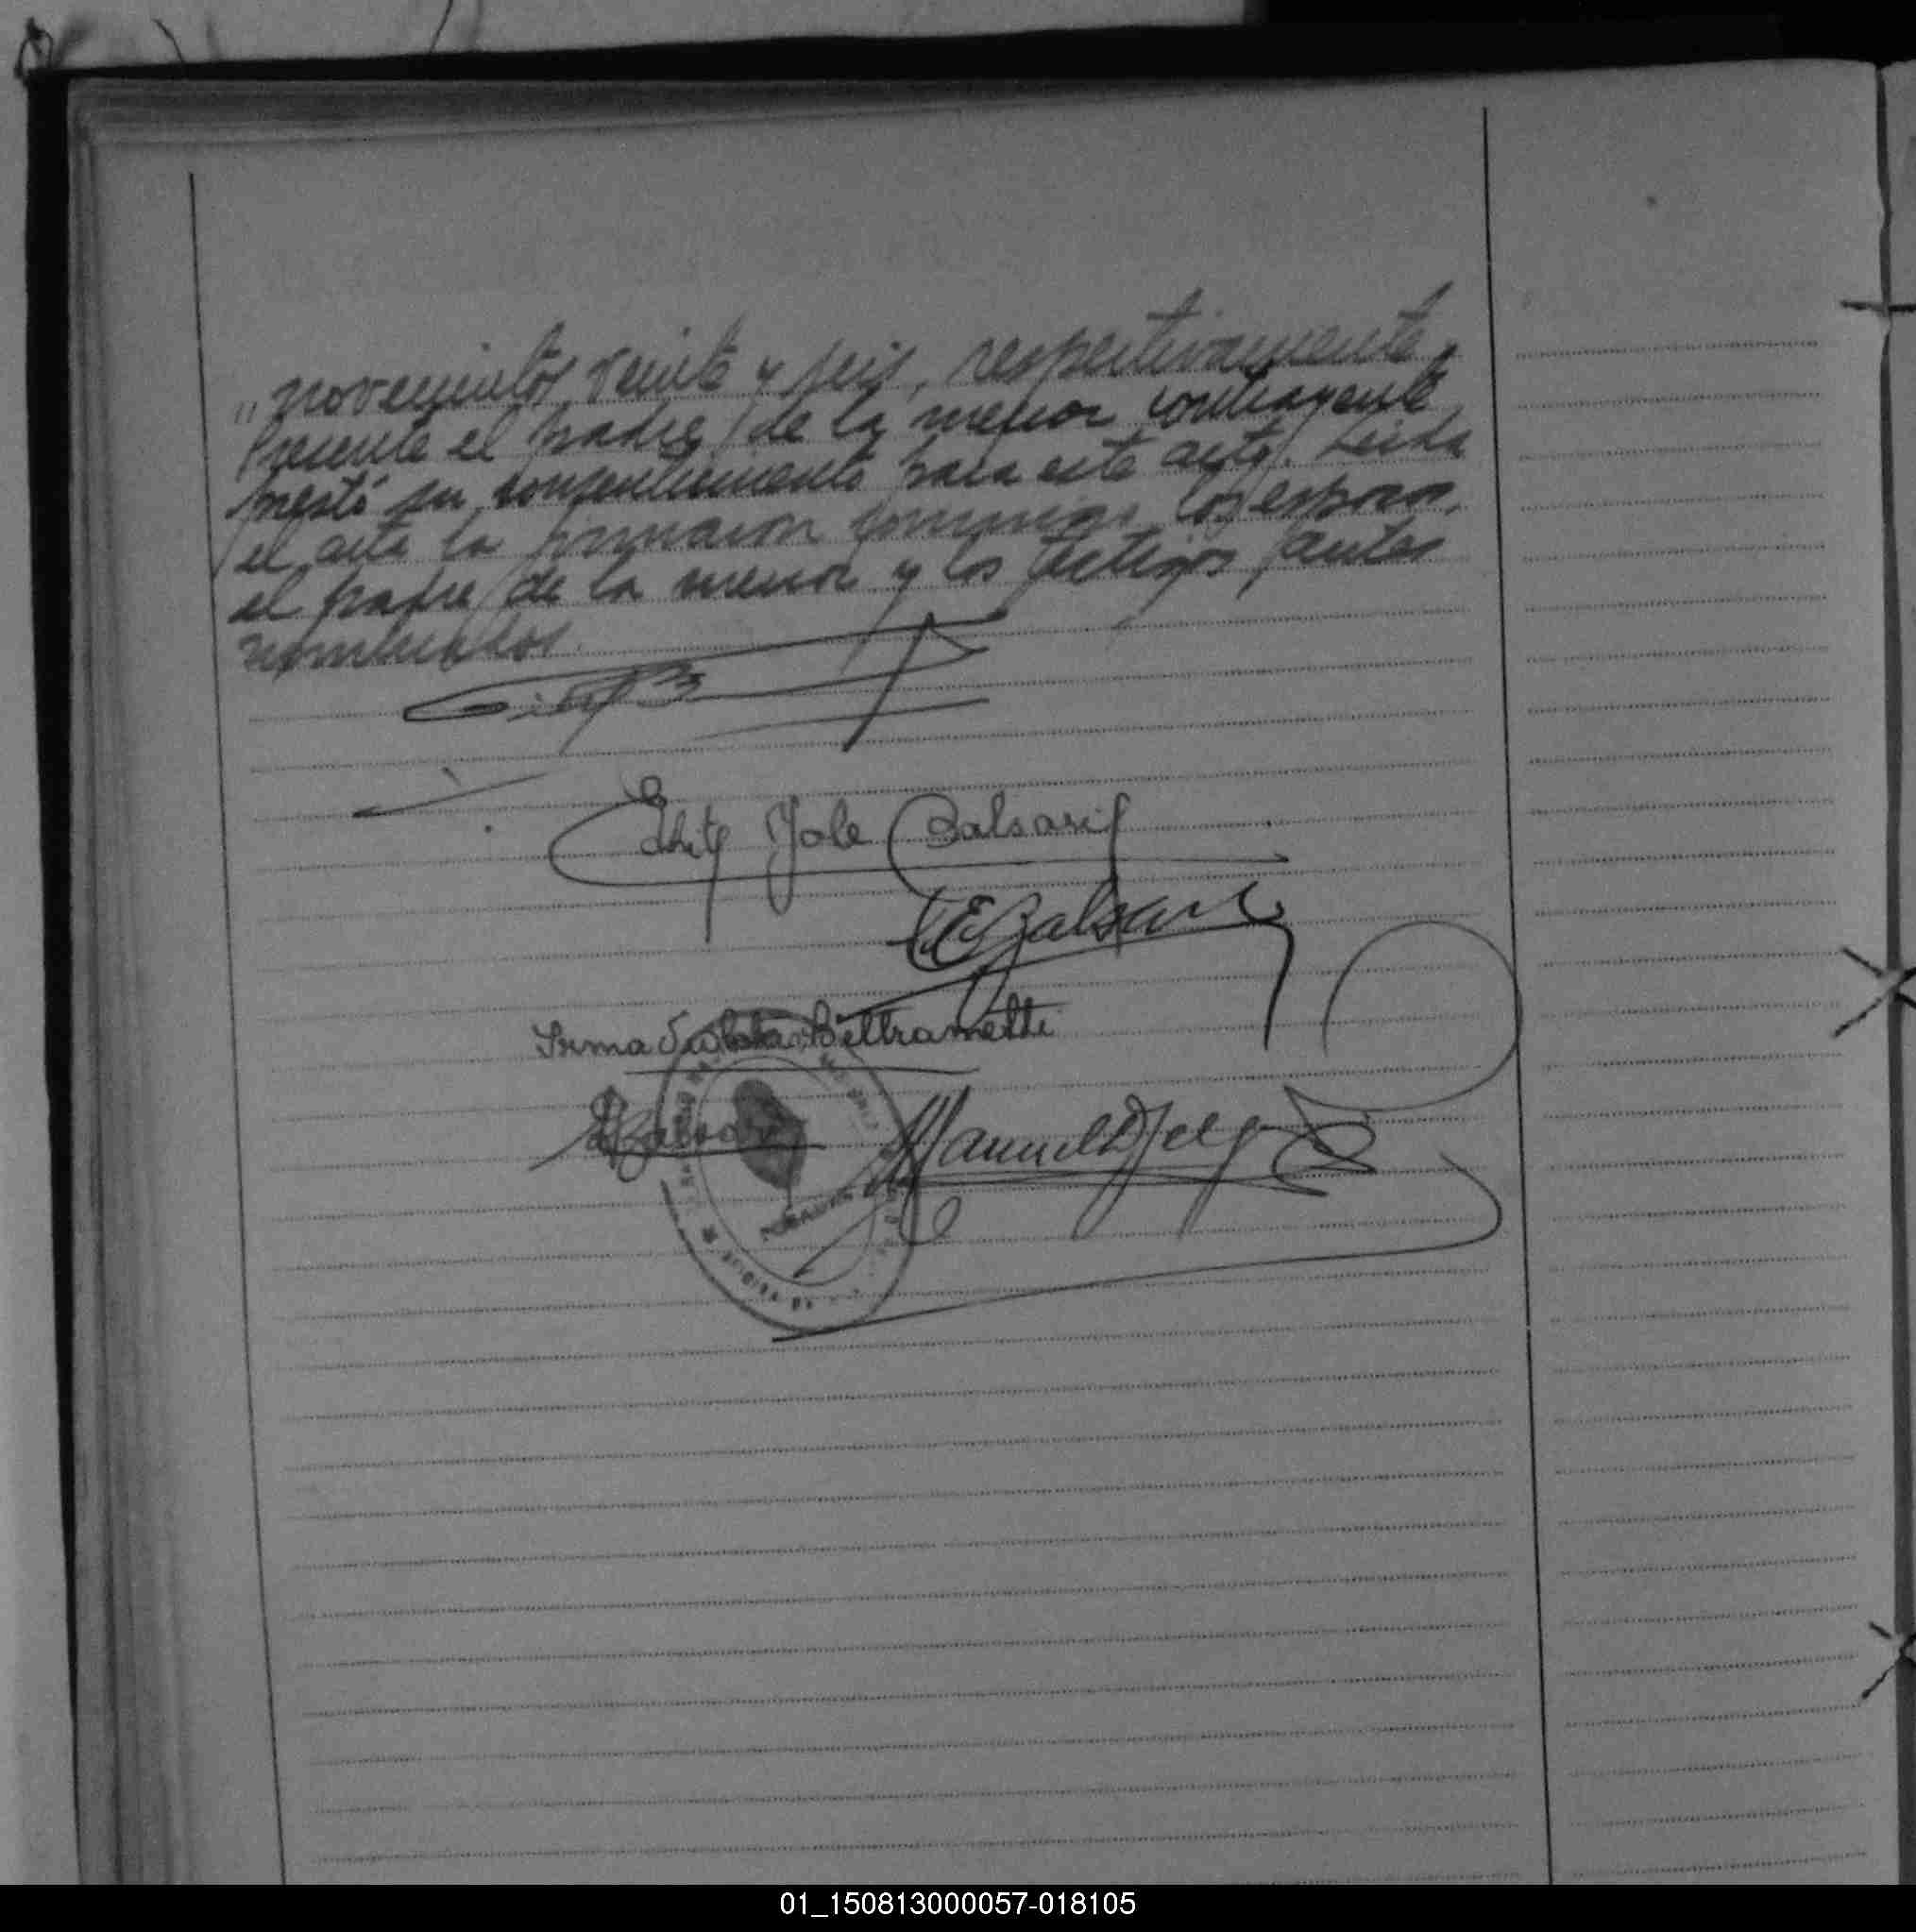 „novecientos veinte y seis, respectivamente.
Presente el padre de la menor contrayente
prestó su consentimiento para este acto. Leida
el acta la firmaron conmigo los esposos,
el padre de la menor y los testigos antes
nombrados.
Edhit Yole Balsari
E Balsari
Irma Beltrametti
Balsari
Manuel
01_150813000057-018105